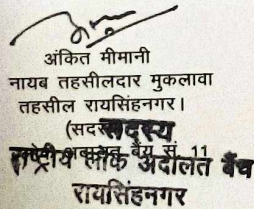 अंकित मीमानी
नायब तहसीलदार मुकलावा
तहसील रायसिंहनगर।
(सदस्य
सदस्य
बैंच सं. 11
राष्ट्रीय लोक अदालत बैंच
रायसिंहनगर